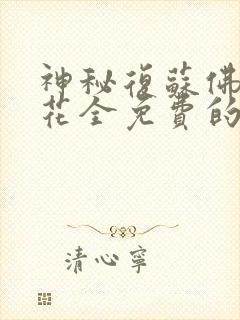 神秘復蘇佛
花全免費的
清心寧